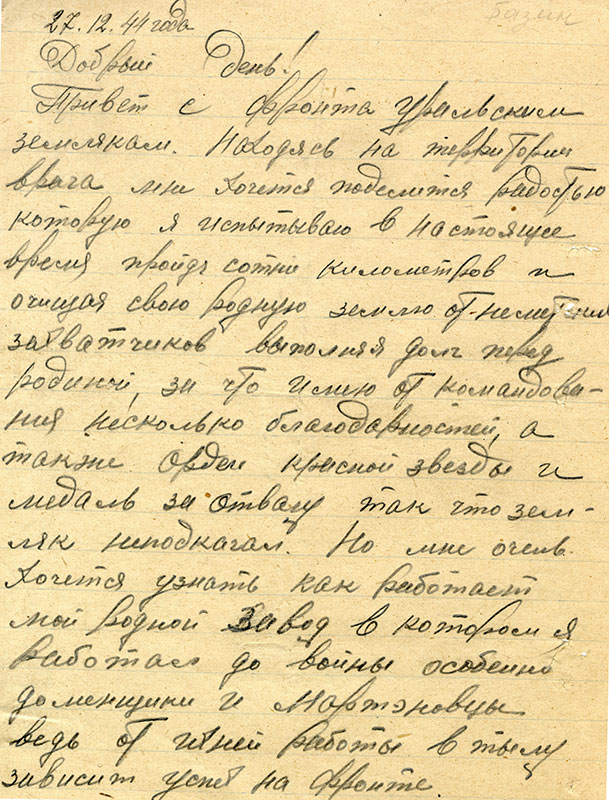 базин
27.12.44 года
Добрый день!
Привет с фронта уральским
землякам. Находясь на территории
врага мне хочется поделится радостью
которую я испытываю в настоящее
время пройдя сотни километров и
очищая свою родную землю от немецких
захватчиков выполняя долг перед
родиной, за что имею от командова-
ния несколько благодарностей, а
также орден красной звезды и
медаль за отвагу так что зем-
ляк неподкачал. Но мне очень
хочется узнать как работает
мой родной завод в котором я
работал до войны особенно
доменщики и мартэновцы
ведь от ихней работы в тылу
зависит успех на фронте.